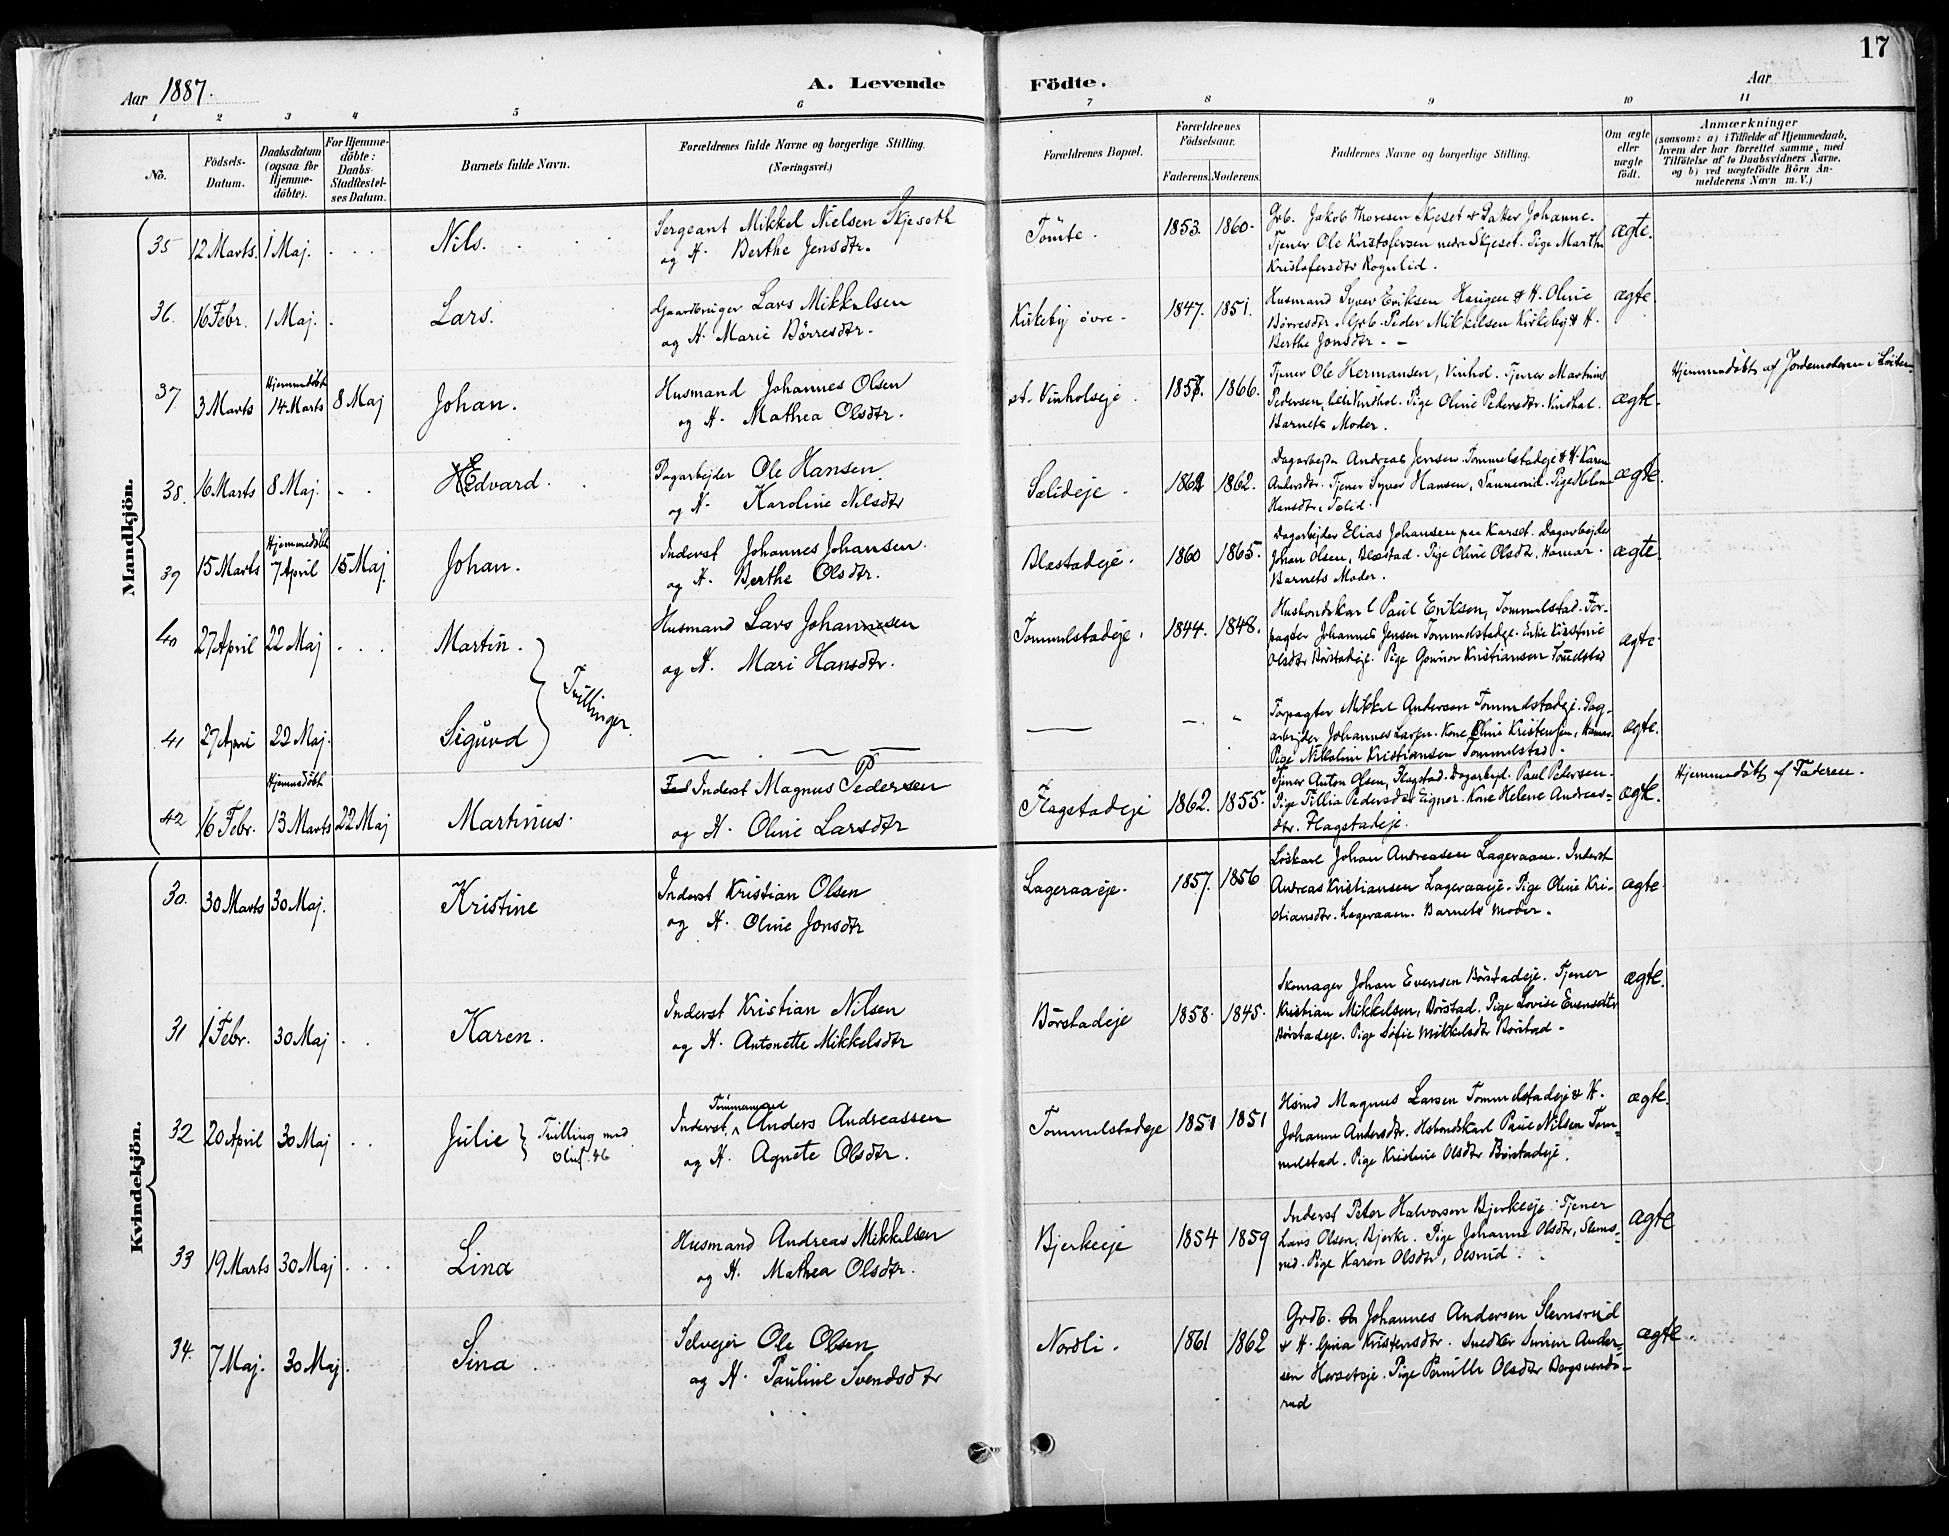 17
Aar 1887.
A. Levende
Födte.
Aar
1 2 3 4 5 6 7 8 9 10 11
No.
Födsels-
Datum.
Daabsdatum
(ogsaa for
Hjemme-
döbte).
For Hjemme-
döbte:
Daabs-
Stadfæstel-
ses Datum.
Barnets fulde Navn.
Forældrenes fulde Navne og borgerlige Stilling.
(Næringsvei.)
Forældrenes Bopæl.
Forældrenes
Födselsaar.
Faderens. Moderens.
Faddernes Navne og borgerlige Stilling.
Om ægte
eller
uægte
födt.
Anmærkninger
(saasom: a) i Tilfælde af Hjemmedaab,
hvem der har forrettet samme, med
Tilföielse af to Daabsvidners Navne.
og b) ved uægtefödte Börn An-
melderens Navn m. V.)
Mandkjön.
35 12 Marts. 1 Maj.
Nils.
Sergeant Mikkel Nielsen Skjeseth
og H. Berthe Jensdtr.
Tömte. 1853. 1860.
Grb. Jakob Thoresen Skjeset & Datter Johanne.
Tjener Ole Kristofersen nedre Skjeset. Pige Marthe
Kristofersdtr Rognlid.
ægte.
36. 16 Febr. 1 Maj.
Lars.
Gaardbruger Lars Mikkelsen
og H. Marie Börresdtr.
Kirkeby övre. 1847. 1851.
Husmand Syver Eriksen Haugen & H. Oline
Börresdtr. Grb. Peder Mikkelsen Kirkeby & H.
Berthe Jonsdtr.
ægte
37. 3 Marts Hjemmedöbt
14 Marts 8 Maj
Johan.
Husmand Johannes Olsen
og H. Mathea Olsdtr.
st. Vinholseje. 1857. 1866.
Tjener Ole Hermansen, Vinhol. Tjener Martinus
Pedersen, lille Vindhol. Pige Oline Pedersdtr. Vindhol.
Barnets Moder.
ægte.
Hjemmedöbt af Jordemoderen i Löiten
38. 16 Marts 8 Maj.
Edvard.
Dagarbejder Ole Hansen
og H. Karoline Nilsdtr
Sælideje. 1862 1862.
Dagarbejder Andreas Jensen Tommelstadeje & H. Karen
Andersdtr. Tjener Syver Hansen, Sannerud. Pige Helene
Hansdtr, Sælid.
ægte.
39 15 Marts Hjemmedöbt
7 April 15 Maj
Johan.
Inderst Johannes Johansen.
og H. Berthe Olsdtr.
Blæstadeje. 1860 1865.
Dagarbejder Elias Johansen paa Karset. Dagarbejder
Johan Olsen, Blæstad. Pige Oline Olsdtr, Hamar.
Barnets Moder.
ægte.
40 27 April 22 Maj
Martin.
Tvillinger.
Husmand Lars Johannesen
og H. Mari Hansdtr.
Tommelstadeje. 1844. 1848.
Husbondskarl Paul Eriksen, Tommelstad. For-
pagter Johannes Jensen Tommelstadeje. Enke Kirstine
Olsdtr Börstadeje. Pige Gunnor Kristiansen
ægte
41 27 April 22 Maj.
Sigurd
Forpagter Mikkel Andersen Tommelstadeje. Dag-
arbejder Johannes Larsen. Kone Oline Kristensen, Hamar.
Pige Nikoline Kristiansen Tommelstad.
ægte.
42 16 Febr. Hjemmedöbt
13 Marts 22 Maj
Martinus.
Inderst Magnus Pedersen
og H. Oline Larsdtr
Flagstadeje 1862. 1855.
Tjener Anton Olsen, Flagstad. Dagarbejd. Paul Petersen.
Pige Tillia Pedersdtr Eigner. Kone Helene Andreas-
dtr. Flagstadeje.
ægte.
Hjemmedöbt af Faderen.
Kvindekjön.
30. 30 Marts 30 Maj.
Kristine
Inderst Kristian Olsen
og H. Oline Jonsdtr
Lageraaeje. 1857. 1856
Löskarl Johan Andreasen Lageraaen. Inderst
Andreas Kristiansen Lageraaeje. Pige Oline Kri-
stiansdtr. Lageraaen. Barnets Moder.
ægte
31 1 Febr. 30 Maj
Karen.
Inderst Kristian Nilsen
og H. Antonette Mikkelsdtr
Börstadeje 1858. 1845.
Skomager Johan Evensen Börstadeje. Tjener
Kristian Mikkelsen, Börstad. Pige Lovise Evensdtr
Börstadeje. Pige Sofie Mikkelsdtr Börstad.
ægte.
32 20 April 30 Maj
Julie } Tvilling med
Oluf. 46
Tömmermand
Inderst, Anders Andreassen
og H. Agnete Olsdtr.
Tommelstadeje 1851 1851
Hsmd Magnus Larsen Tommelstadeje & H.
Johanne Andersdtr. Hsbondskarl Paul Nilsen Tom-
melstad. Pige Kristine Olsdtr Börstadeje.
ægte.
33 19 Marts 30 Maj
Lina
Husmand Andreas Mikkelsen
og H. Mathea Olsdtr.
Bjerkeeje 1854 1859
Inderst Peter Halvorsen Bjerkeeje. Tjener
Lars Olsen, Bjerke. Pige Johanne Olsdtr, Slems-
rud. Pige Karen Olsdtr, Olsrud.
ægte
34. 7 Maj. 30 Maj.
Sina
Selvejer Ole Olsen
og H. Pauline Svendsdtr
Nordli. 1861 1862
Grdb. Johannes Andersen Slemsrud
& H. Gina Kristensdtr. Snedker Simen Ander-
sen Hersetreje. Pige Pernille Olsdtr Bergsvends-
rud
ægte.